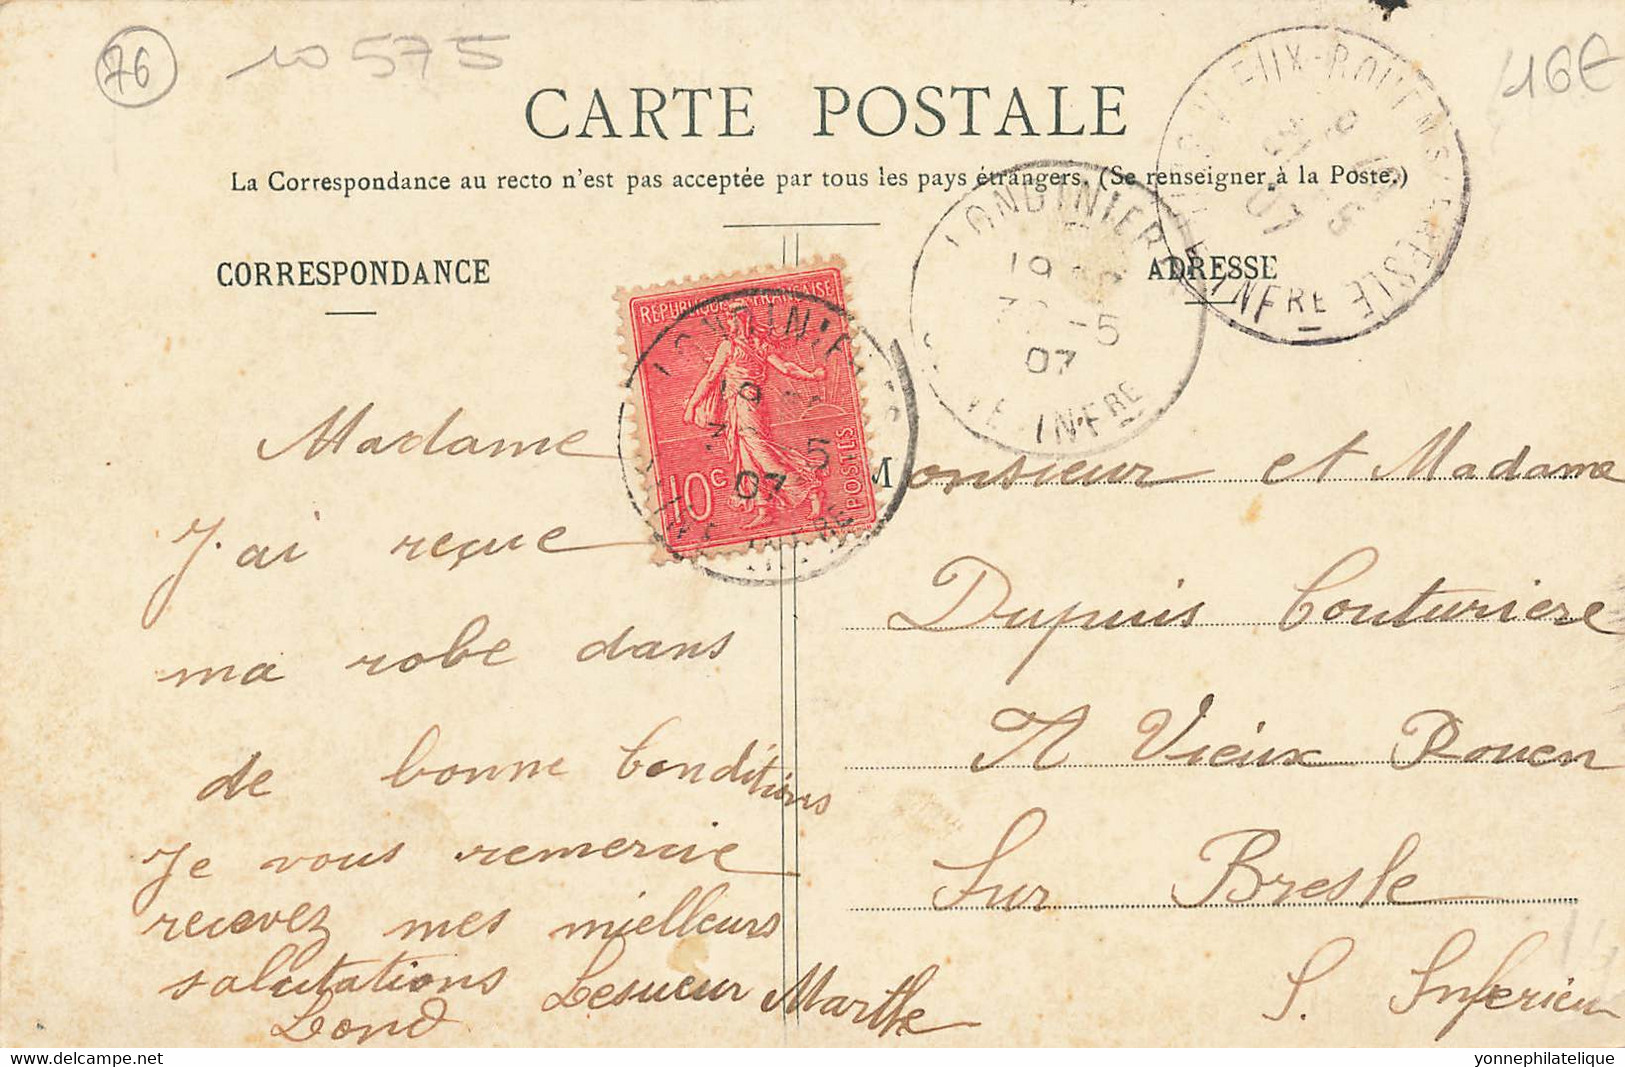 76
10575
16€
CARTE POSTALE
La Correspondance au recto n'est pas acceptée par tous les pays étrangers. (Se renseigner à la Poste.)
CORRESPONDANCE
ADRESSE
REPUBLIQUE FRANÇAISE
10c
POSTES
LONDINIERES
19
30 5
07
INFRE
LONDINIERES
19
30 -5
07
INFRE
VIEUX-ROUEN-S-BRESLE
31 -5
07
INFRE
Madame
J'ai reçue
ma robe dans
de bonne Conditions
Je vous remercie
recevez mes mielleurs
salutations Lesueur Marthe
Lond
Monsieur et Madame
Dupuis Couturiere
A Vieux Rouen
Sur Bresle
S. Inferieu
www.delcampe.net
yonnephilatelique